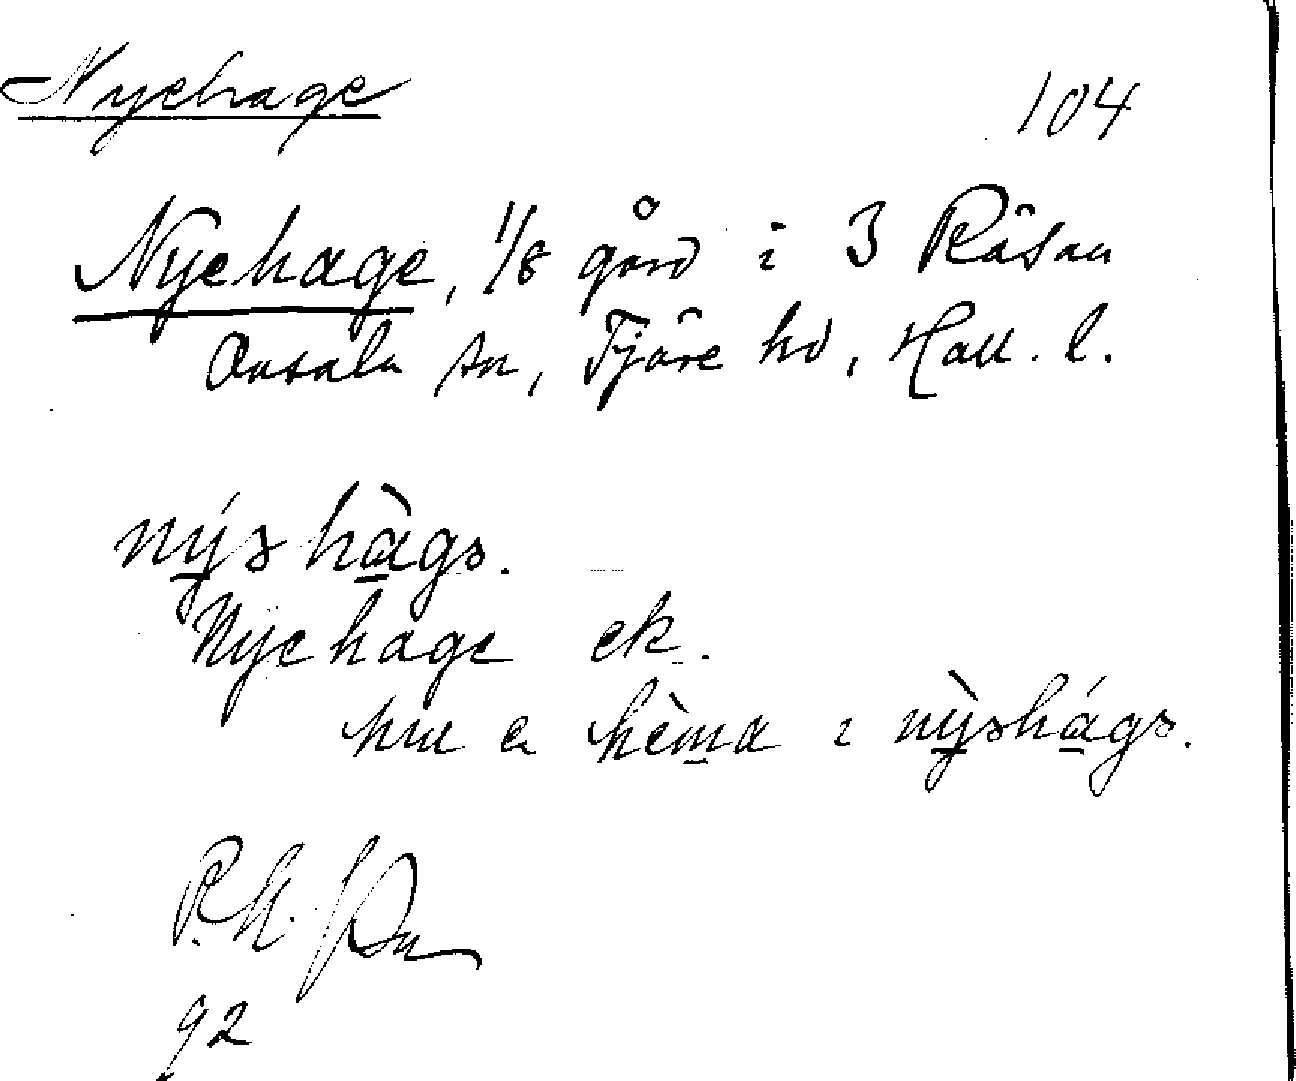 Nyehage 104
Nyehage, 1/8 gård i 3 Råsan
Onsala sn, Fjäre hd, Hall. l.
nýs hàgs.
Nyehage ek.
hur e hèma i nỳshágs.
P.N. Pn
92